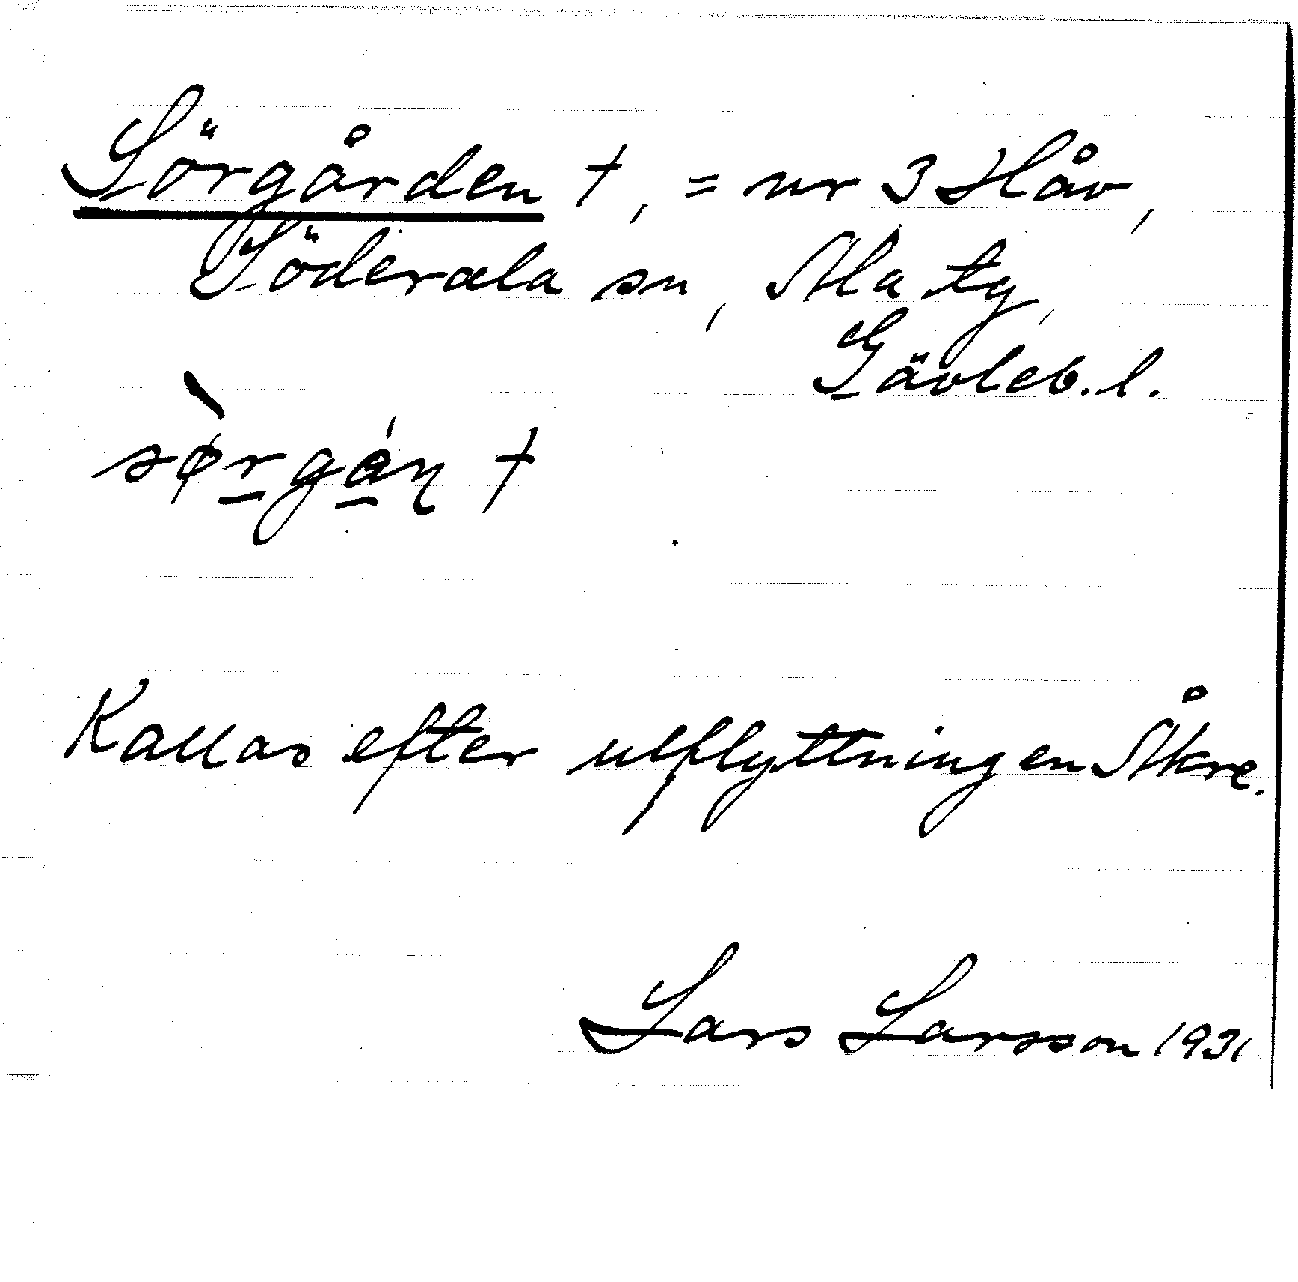 Sörgården †, = nr 3 Håv,
Söderala sn, Ala tg,
Gävleb. l.
sø̀rgáɳ †
Kallas efter utflyttningen Åkre.
Lars Larsson 1931